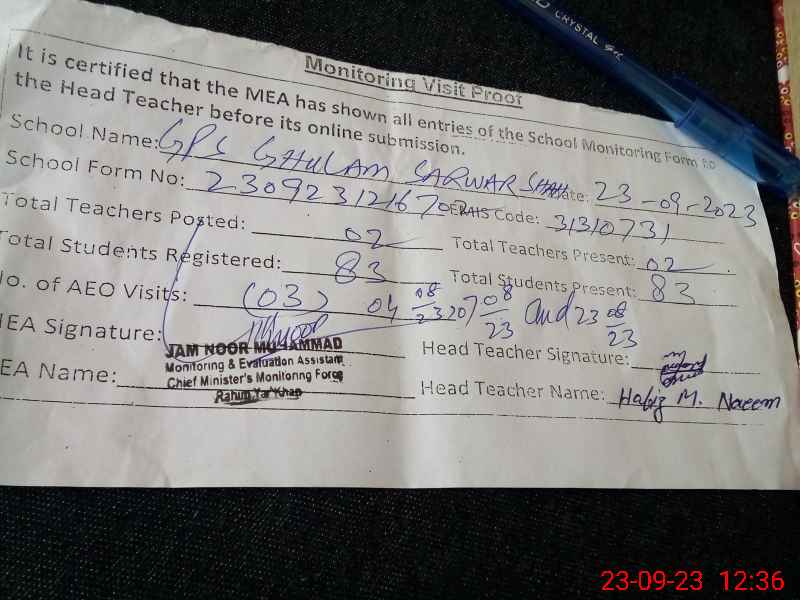 CRYSTAL
Monitoring Visit Proof
It is certified that the MEA has shown all entries of the School Monitoring Form to
the Head Teacher before its online submission.
School Name: GPS GHULAM SARWAR SHAH Date: 23-09-2023
School Form No: 2309231216702 EMIS Code: 31310731
Total Teachers Posted: 02 Total Teachers Present: 02
Total Students Registered: 83 Total Students Present: 83
No. of AEO Visits: (03) 04 08/23 07 08/23 and 23 08/23
MEA Signature: Head Teacher Signature:
JAM NOOR MUHAMMAD
Monitoring & Evaluation Assistant
Chief Minister's Monitoring Force
Rahim Yar Khan
MEA Name: Head Teacher Name: Hafiz M. Naeem
23-09-23 12:36